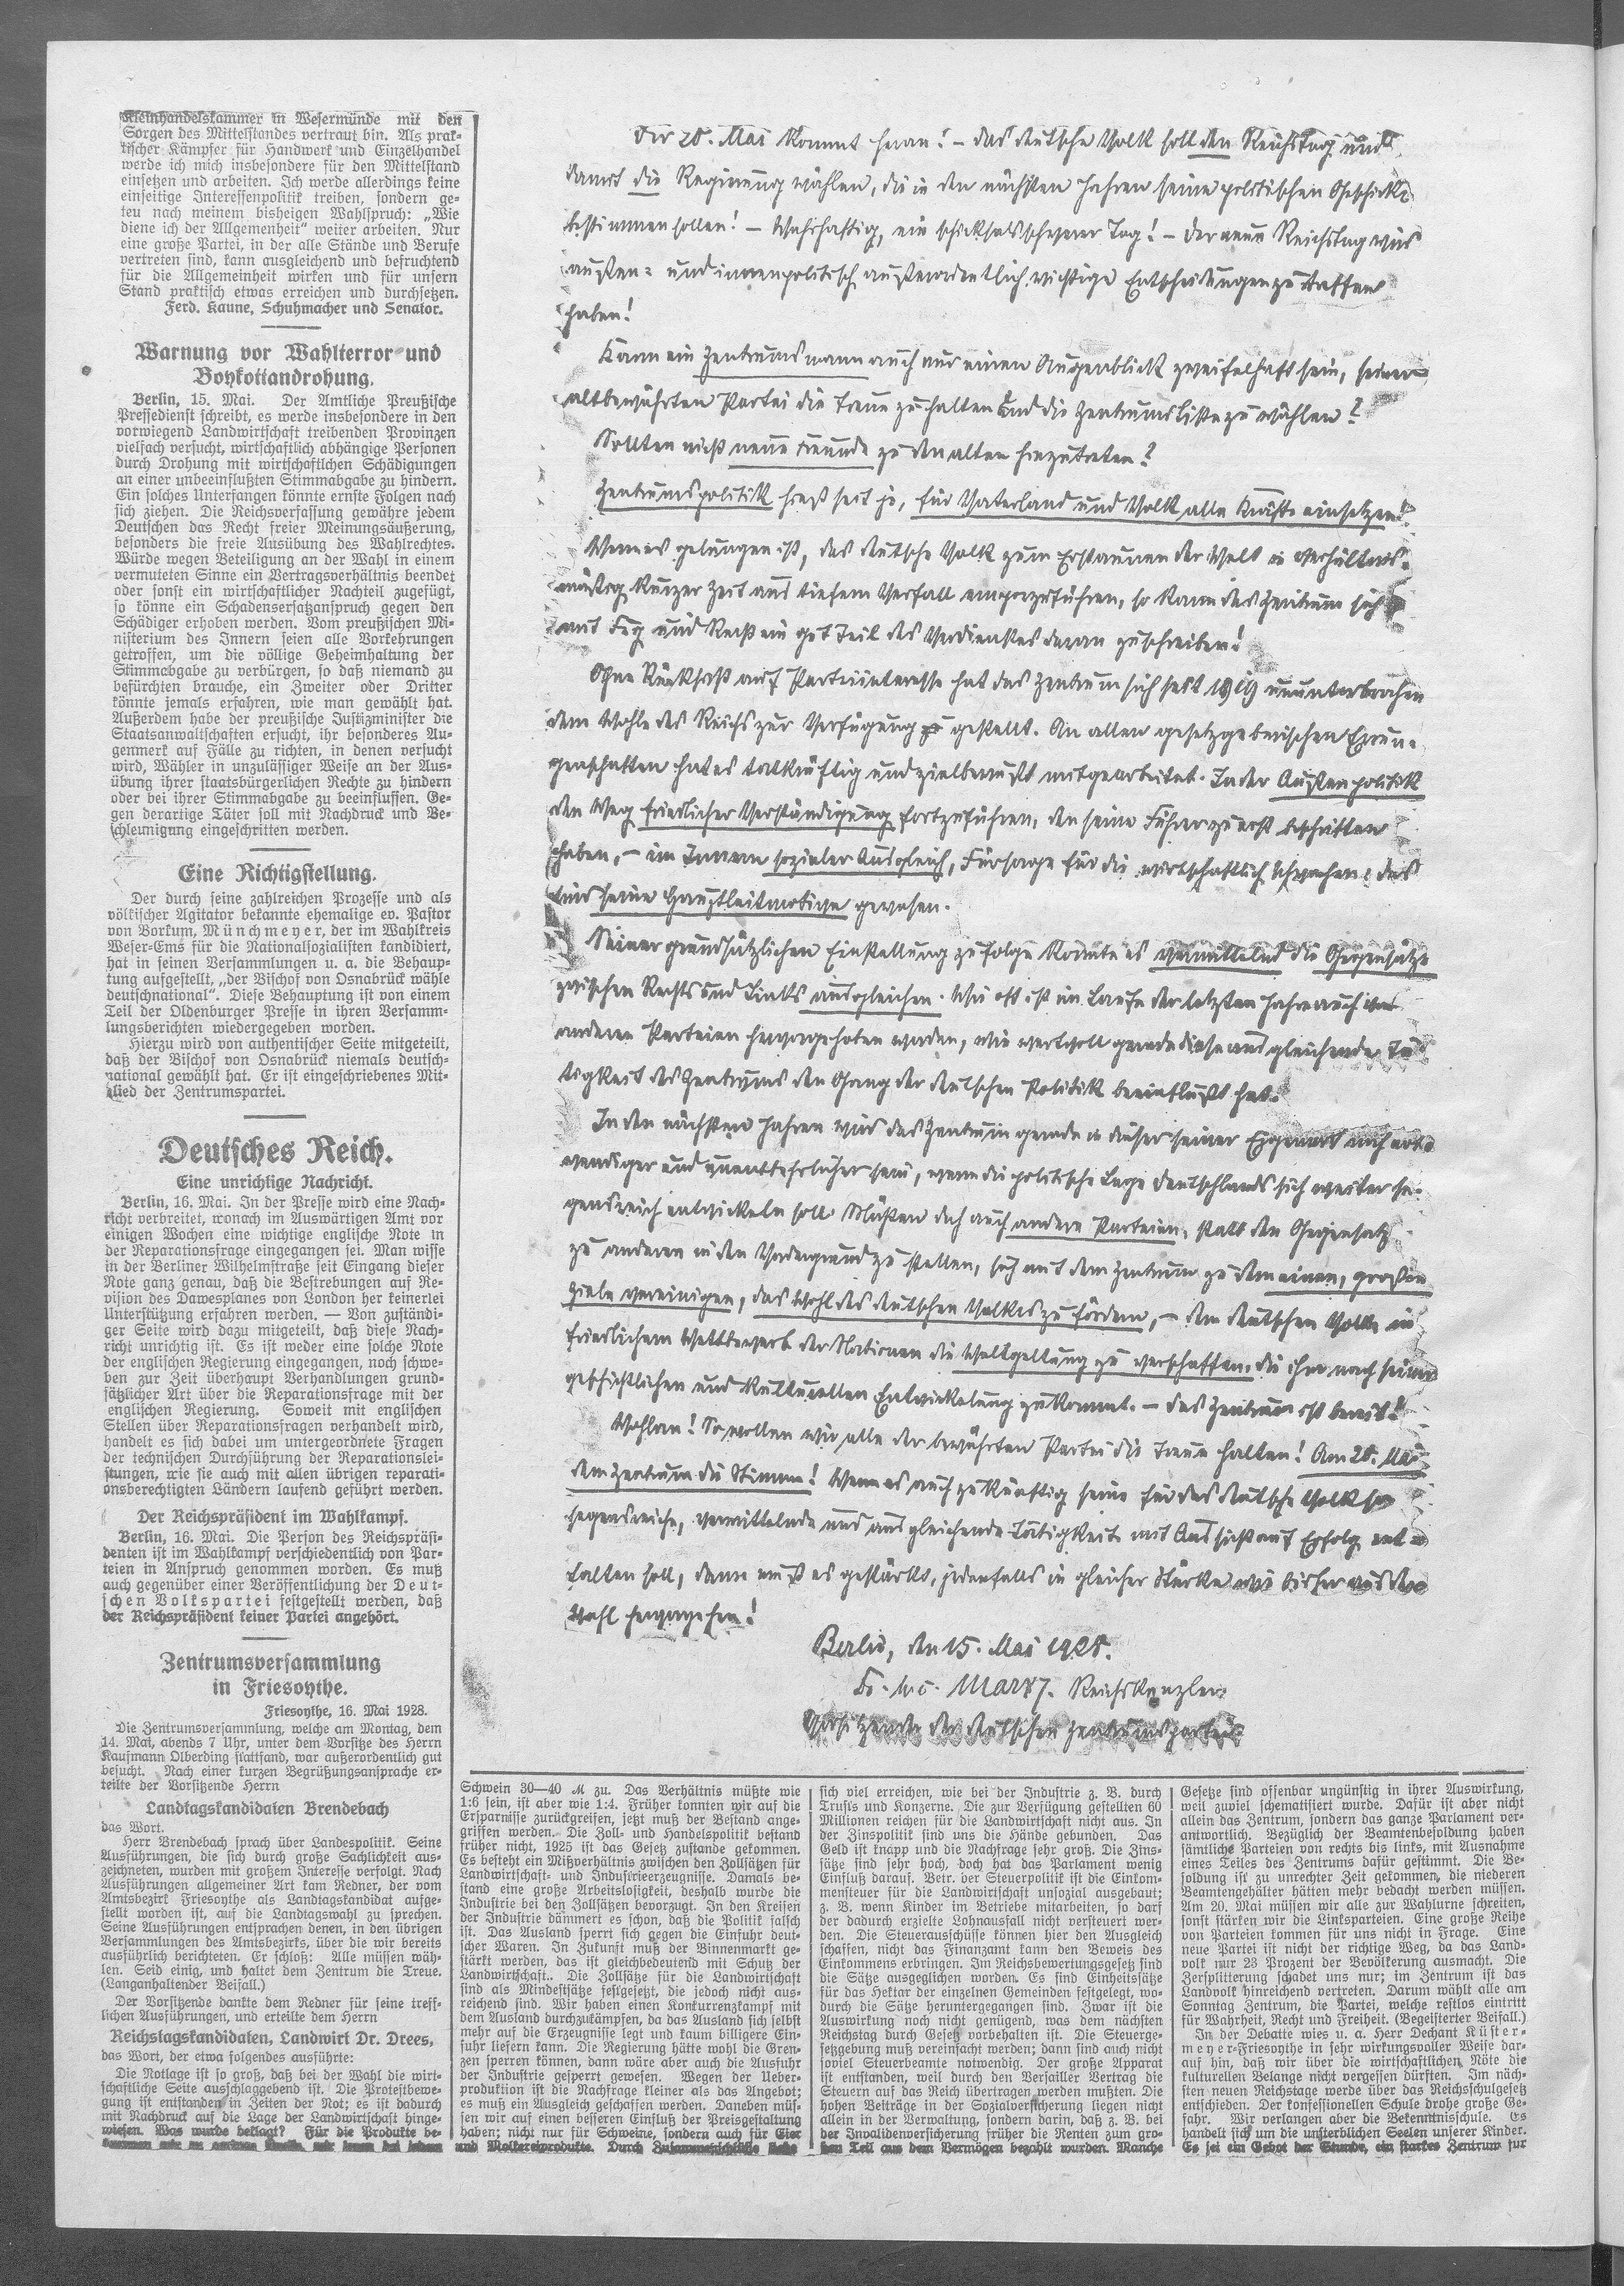 Kleinhandelskammer in Wesermünde mit den
Sorgen des Mittelstandes vertraut bin. Als prak-
tischer Kämpfer für Handwerk und Einzelhandel
werde ich mich insbesondere für den Mittelstand
einsetzen und arbeiten. Ich werde allerdings keine
einseitige Interessenpolitik treiben, sondern ge-
teu nach meinem bisherigen Wahlspruch: „Wie
diene ich der Allgemeinheit“ weiter arbeiten. Nur
eine große Partei, in der alle Stände und Berufe
vertreten sind, kann ausgleichend und befruchtend
für die Allgemeinheit wirken und für unsern
Stand praktisch etwas erreichen und durchsetzen.
Ferd. Kaune, Schuhmacher und Senator.
Warnung vor Wahlterror und
Boykottandrohung.
Berlin, 15. Mai. Der Amtliche Preußische
Pressedienst schreibt, es werde insbesondere in den
vorwiegend Landwirtschaft treibenden Provinzen
vielfach versucht, wirtschaftlich abhängige Personen
durch Drohung mit wirtschaftlchen Schädigungen
an einer unbeeinflußten Stimmabgabe zu hindern.
Ein solches Unterfangen könnte ernste Folgen nach
sich ziehen. Die Reichsverfassung gewähre jedem
Deutschen das Recht freier Meinungsäußerung,
besonders die freie Ausübung des Wahlrechtes.
Würde wegen Beteiligung an der Wahl in einem
vermuteten Sinne ein Vertragsverhältnis beendet
oder sonst ein wirtschaftlicher Nachteil zugefügt,
so könne ein Schadensersatzanspruch gegen den
Schädiger erhoben werden. Vom preußischen Mi-
nisterium des Innern seien alle Vorkehrungen
getroffen, um die völlige Geheimhaltung der
Stimmabgabe zu verbürgen, so daß niemand zu
befürchten brauche, ein Zweiter oder Dritter
könnte jemals erfahren, wie man gewählt hat.
Außerdem habe der preußische Justizminister die
Staatsanwaltschaften ersucht, ihr besonderes Au-
genmerk auf Fälle zu richten, in denen versucht
wird, Wähler in unzulässiger Weise an der Aus-
übung ihrer staatsbürgerlichen Rechte zu hindern
oder bei ihrer Stimmabgabe zu beeinflussen. Ge-
gen derartige Täter soll mit Nachdruck und Be-
schleunigung eingeschritten werden.
Eine Richtigstellung.
Der durch seine zahlreichen Prozesse und als
völkischer Agitator bekannte ehemalige ev. Pastor
von Borkum, Münchmeyer, der im Wahlkreis
Weser-Ems für die Nationalsozialisten kandidiert,
hat in seinen Versammlungen u. a. die Behaup-
tung aufgestellt, „der Bischof von Osnabrück wähle
deutschnational“. Diese Behauptung ist von einem
Teil der Oldenburger Presse in ihren Versamm-
lungsberichten wiedergegeben worden.
Hierzu wird von authentischer Seite mitgeteilt,
daß der Bischof von Osnabrück niemals deutsch-
national gewählt hat. Er ist eingeschriebenes Mit-
glied der Zentrumspartei.
Deutsches Reich.
Eine unrichtige Nachricht.
Berlin, 16. Mai. In der Presse wird eine Nach-
richt verbreitet, wonach im Auswärtigen Amt vor
einigen Wochen eine wichtige englische Note in
der Reparationsfrage eingegangen sei. Man wisse
in der Berliner Wilhelmstraße seit Eingang dieser
Note ganz genau, daß die Bestrebungen auf Re-
vision des Dawesplanes von London her keinerlei
Unterstützung erfahren werden. — Von zuständi-
ger Seite wird dazu mitgeteilt, daß diese Nach-
richt unrichtig ist. Es ist weder eine solche Note
der englischen Regierung eingegangen, noch schwe-
ben zur Zeit überhaupt Verhandlungen grund-
sätzlicher Art über die Reparationsfrage mit der
englischen Regierung. Soweit mit englischen
Stellen über Reparationsfragen verhandelt wird,
handelt es sich dabei um untergeordnete Fragen
der technischen Durchführung der Reparationslei-
stungen, wie sie auch mit allen übrigen reparati-
onsberechtigten Ländern laufend geführt werden.
Der Reichspräsident im Wahlkampf.
Berlin, 16. Mai. Die Person des Reichspräsi-
denten ist im Wahlkampf verschiedentlich von Par-
teien in Anspruch genommen worden. Es muß
auch gegenüber einer Veröffentlichung der Deut-
schen Volkspartei festgestellt werden, daß
der Reichspräsident keiner Partei angehört.
Zentrumsversammlung
in Friesoythe.
Friesoythe, 16. Mai 1928.
Die Zentrumsversammlung, welche am Montag, dem
14. Mai, abends 7 Uhr, unter dem Vorsitze des Herrn
Kaufmann Olberding stattfand, war außerordentlich gut
besucht. Nach einer kurzen Begrüßungsansprache er-
teilte der Vorsitzende Herrn
Landtagskandidaten Brendebach
das Wort.
Herr Brendebach sprach über Landespolitik. Seine
Ausführungen, die sich durch große Sachlichkeit aus-
zeichneten, wurden mit großem Interesse verfolgt. Nach
Ausführungen allgemeiner Art kam Redner, der vom
Amtsbezirk Friesoythe als Landtagskandidat aufge-
stellt worden ist, auf die Landtagswahl zu sprechen.
Seine Ausführungen entsprachen denen, in den übrigen
Versammlungen des Amtsbezirks, über die wir bereits
ausführlich berichteten. Er schloß: Alle müssen wäh-
len. Seid einig, und haltet dem Zentrum die Treue.
(Langanhaltender Beifall.)
Der Vorsitzende dankte dem Redner für seine treff-
lichen Ausführungen, und erteilte dem Herrn
Reichstagskandidaten, Landwirt Dr. Drees,
das Wort, der etwa folgendes ausführte:
Die Notlage ist so groß, daß bei der Wahl die wirt-
schaftliche Seite ausschlaggebend ist. Die Protestbewe-
gung ist entstanden in Zeiten der Not; es ist dadurch
mit Nachdruck auf die Lage der Landwirtschaft hinge-
wiesen. Was wurde beklagt? Für die Produkte be-
Der 20. Mai kommt heran! – Das deutsche Volk soll den Reichstag und
damit die Regierung wählen, die in den nächsten Jahren seine politischen Geschicke
bestimmen sollen! – Wahrhaftig, ein schicksalsschwerer Tag! – Der neue Reichstag wird
außen- und innenpolitisch außerordentlich wichtige Entscheidungen zu treffen
haben!
Kann ein Zentrumsmann auch nur einen Augenblick zweifelhaft sein, seiner
altbewährten Partei die Treue zu halten und die Zentrumsliste zu wählen?
Sollten nicht neue Freunde zu den alten hinzutreten?
Zentrumspolitik hieß seit je, für Vaterland und Volk alle Kräfte einsetzen!
Wenn es gelungen ist, das deutsche Volk zum Erstaunen der Welt in verhältnis-
mäßig kurzer Zeit aus tiefem Verfall emporzuführen, so kann das Zentrum sich
mit Fug und Recht ein gut Teil des Verdienstes daran zuschreiben!
Ohne Rücksicht auf Parteiinteresse hat das Zentrum sich seit 1919 ununterbrochen
dem Wohle des Reichs zur Verfügung gestellt. An allen gesetzgeberischen Errun-
genschaften hat es tatkräftig und zielbewußt mitgearbeitet. In der Außenpolitik
den Weg friedlicher Verständigung fortzuführen, den seine Führer zuerst beschritten
haben, – im Innern sozialer Ausgleich, Fürsorge für die wirtschaftlich Schwachen: das
sind seine Hauptleitmotive gewesen.
Seiner grundsätzlichen Einstellung zufolge konnte es vermittelnd die Gegensätze
zwischen Rechts und Links ausgleichen. Wie oft ist im Laufe der letzten Jahre auch von
anderen Parteien hervorgehoben worden, wie wertvoll gerade diese ausgleichende Tä-
tigkeit des Zentrums den Gang der deutschen Politik beeinflußt hat.
In den nächsten Jahren wird das Zentrum gerade in dieser seiner Eigenart noch not-
wendiger und unentbehrlicher sein, wenn die politische Lage Deutschlands sich weiter se-
gensreich entwickeln soll. Müßten doch auch andere Parteien, statt den Gegensatz
zu anderen in den Vordergrund zu stellen, sich mit dem Zentrum zu dem einen, großen
Ziele vereinigen, das Wohl des deutschen Volkes zu fördern, – dem deutschen Volke in
friedlichem Wettbewerb der Nationen die Weltgeltung zu verschaffen, die ihm nach seiner
geschichtlichen und kulturellen Entwickelung zukommt. – Das Zentrum ist bereit!
Wohlan! So wollen wir alle der bewährten Partei die Treue halten! Am 20. Mai
dem Zentrum die Stimme! Wenn es auch zukünftig seine für das deutsche Volk so
segensreiche, vermittelnde und ausgleichende Tätigkeit mit Aussicht auf Erfolg ent-
falten soll, dann muß es gestärkt, jedenfalls in gleicher Stärke wie bisher aus der
Wahl hervorgehen!
Berlin, den 15. Mai 1928.
Marx, Reichskanzler
Vorsitzender der deutschen Zentrumspartei.
Schwein 30—40 M zu. Das Verhältnis müßte wie
1:6 sein, ist aber wie 1:4. Früher konnten wir auf die
Ersparnisse zurückgreifen, jetzt muß der Bestand ange-
griffen werden. Die Zoll- und Handelspolitik bestand
früher nicht, 1925 ist das Gesetz zustande gekommen.
Es besteht ein Mißverhältnis zwischen den Zollsätzen für
Landwirtschaft- und Industrieerzeugnisse. Damals be-
stand eine große Arbeitslosigkeit, deshalb wurde die
Industrie bei den Zollsätzen bevorzugt. In den Kreisen
der Industrie dämmert es schon, daß die Politik falsch
ist. Das Ausland sperrt sich gegen die Einfuhr deut-
scher Waren. In Zukunft muß der Binnenmarkt ge-
stärkt werden, das ist gleichbedeutend mit Schutz der
Landwirtschaft.. Die Zollsätze für die Landwirtschaft
sind als Mindestsätze festgesetzt, die jedoch nicht aus-
reichend sind. Wir haben einen Konkurrenzkampf mit
dem Ausland durchzukämpfen, da das Ausland sich selbst
mehr auf die Erzeugnisse legt und kaum billigere Ein-
fuhr liefern kann. Die Regierung hätte wohl die Gren-
zen sperren können, dann wäre aber auch die Ausfuhr
der Industrie gesperrt gewesen. Wegen der Ueber-
produktion ist die Nachfrage kleiner als das Angebot;
es muß ein Ausgleich geschaffen werden. Daneben müs-
sen wir auf einen besseren Einfluß der Preisgestaltung
haben; nicht nur für Schweine, sondern auch für Eier
und Molkereiprodukte. Durch
sich viel erreichen, wie bei der Industrie z. B. durch
Trusts und Konzerne. Die zur Verfügung gestellten 60
Millionen reichen für die Landwirtschaft nicht aus. In
der Zinspolitik sind uns die Hände gebunden. Das
Geld ist knapp und die Nachfrage sehr groß. Die Zins-
sätze sind sehr hoch, doch hat das Parlament wenig
Einfluß darauf. Betr. der Steuerpolitik ist die Einkom-
mensteuer für die Landwirtschaft unsozial ausgebaut;
z. B. wenn Kinder im Betriebe mitarbeiten, so darf
der dadurch erzielte Lohnausfall nicht versteuert wer-
den. Die Steuerausschüsse können hier den Ausgleich
schaffen, nicht das Finanzamt kann den Beweis des
Einkommens erbringen. Im Reichsbewertungsgesetz sind
die Sätze ausgeglichen worden. Es sind Einheitsätze
für das Hektar der einzelnen Gemeinden festgelegt, wo-
durch die Sätze heruntergegangen sind. Zwar ist die
Auswirkung noch nicht genügend, was dem nächsten
Reichstag durch Gesetz vorbehalten ist. Die Steuerge-
setzgebung muß vereinfacht werden; dann sind auch nicht
soviel Steuerbeamte notwendig. Der große Apparat
ist entstanden, weil durch den Versailler Vertrag die
Steuern auf das Reich übertragen werden mußten. Die
hohen Beiträge in der Sozialversicherung liegen nicht
allein in der Verwaltung, sondern darin, daß z. B. bei
der Invalidenversicherung früher die Renten zum gro-
ßen Teil aus dem Vermögen bezahlt wurden. Manche
Gesetze sind offenbar ungünstig in ihrer Auswirkung,
weil zuviel schematisiert wurde. Dafür ist aber nicht
allein das Zentrum, sondern das ganze Parlament ver-
antwortlich. Bezüglich der Beamtenbesoldung haben
sämtliche Parteien von rechts bis links, mit Ausnahme
eines Teiles des Zentrums dafür gestimmt. Die Be-
soldung ist zu unrechter Zeit gekommen, die niederen
Beamtengehälter hätten mehr bedacht werden müssen.
Am 20. Mai müssen wir alle zur Wahlurne schreiten,
sonst stärken wir die Linksparteien. Eine große Reihe
von Parteien kommen für uns nicht in Frage. Eine
neue Partei ist nicht der richtige Weg, da das Land-
volk nur 23 Prozent der Bevölkerung ausmacht. Die
Zersplitterung schadet uns nur; im Zentrum ist das
Landvolk hinreichend vertreten. Darum wählt alle am
Sonntag Zentrum, die Partei, welche restlos eintritt
für Wahrheit, Recht und Freiheit. (Begeisterter Beifall.)
In der Debatte wies u. a. Herr Dechant Küster-
meyer-Friesoythe in sehr wirkungsvoller Weise dar-
auf hin, daß wir über die wirtschaftlichen Nöte die
kulturellen Belange nicht vergessen dürften. Im näch-
sten neuen Reichstage werde über das Reichsschulgesetz
entschieden. Der konfessionellen Schule drohe große Ge-
fahr. Wir verlangen aber die Bekenntnisschule. Es
handelt sich um die unsterblichen Seelen unserer Kinder.
Es sei ein Gebot der Stunde, ein starkes Zentrum zur